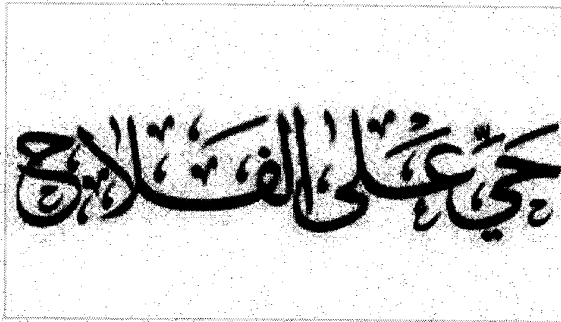 حَيَّ عَلَى الفَلَاح